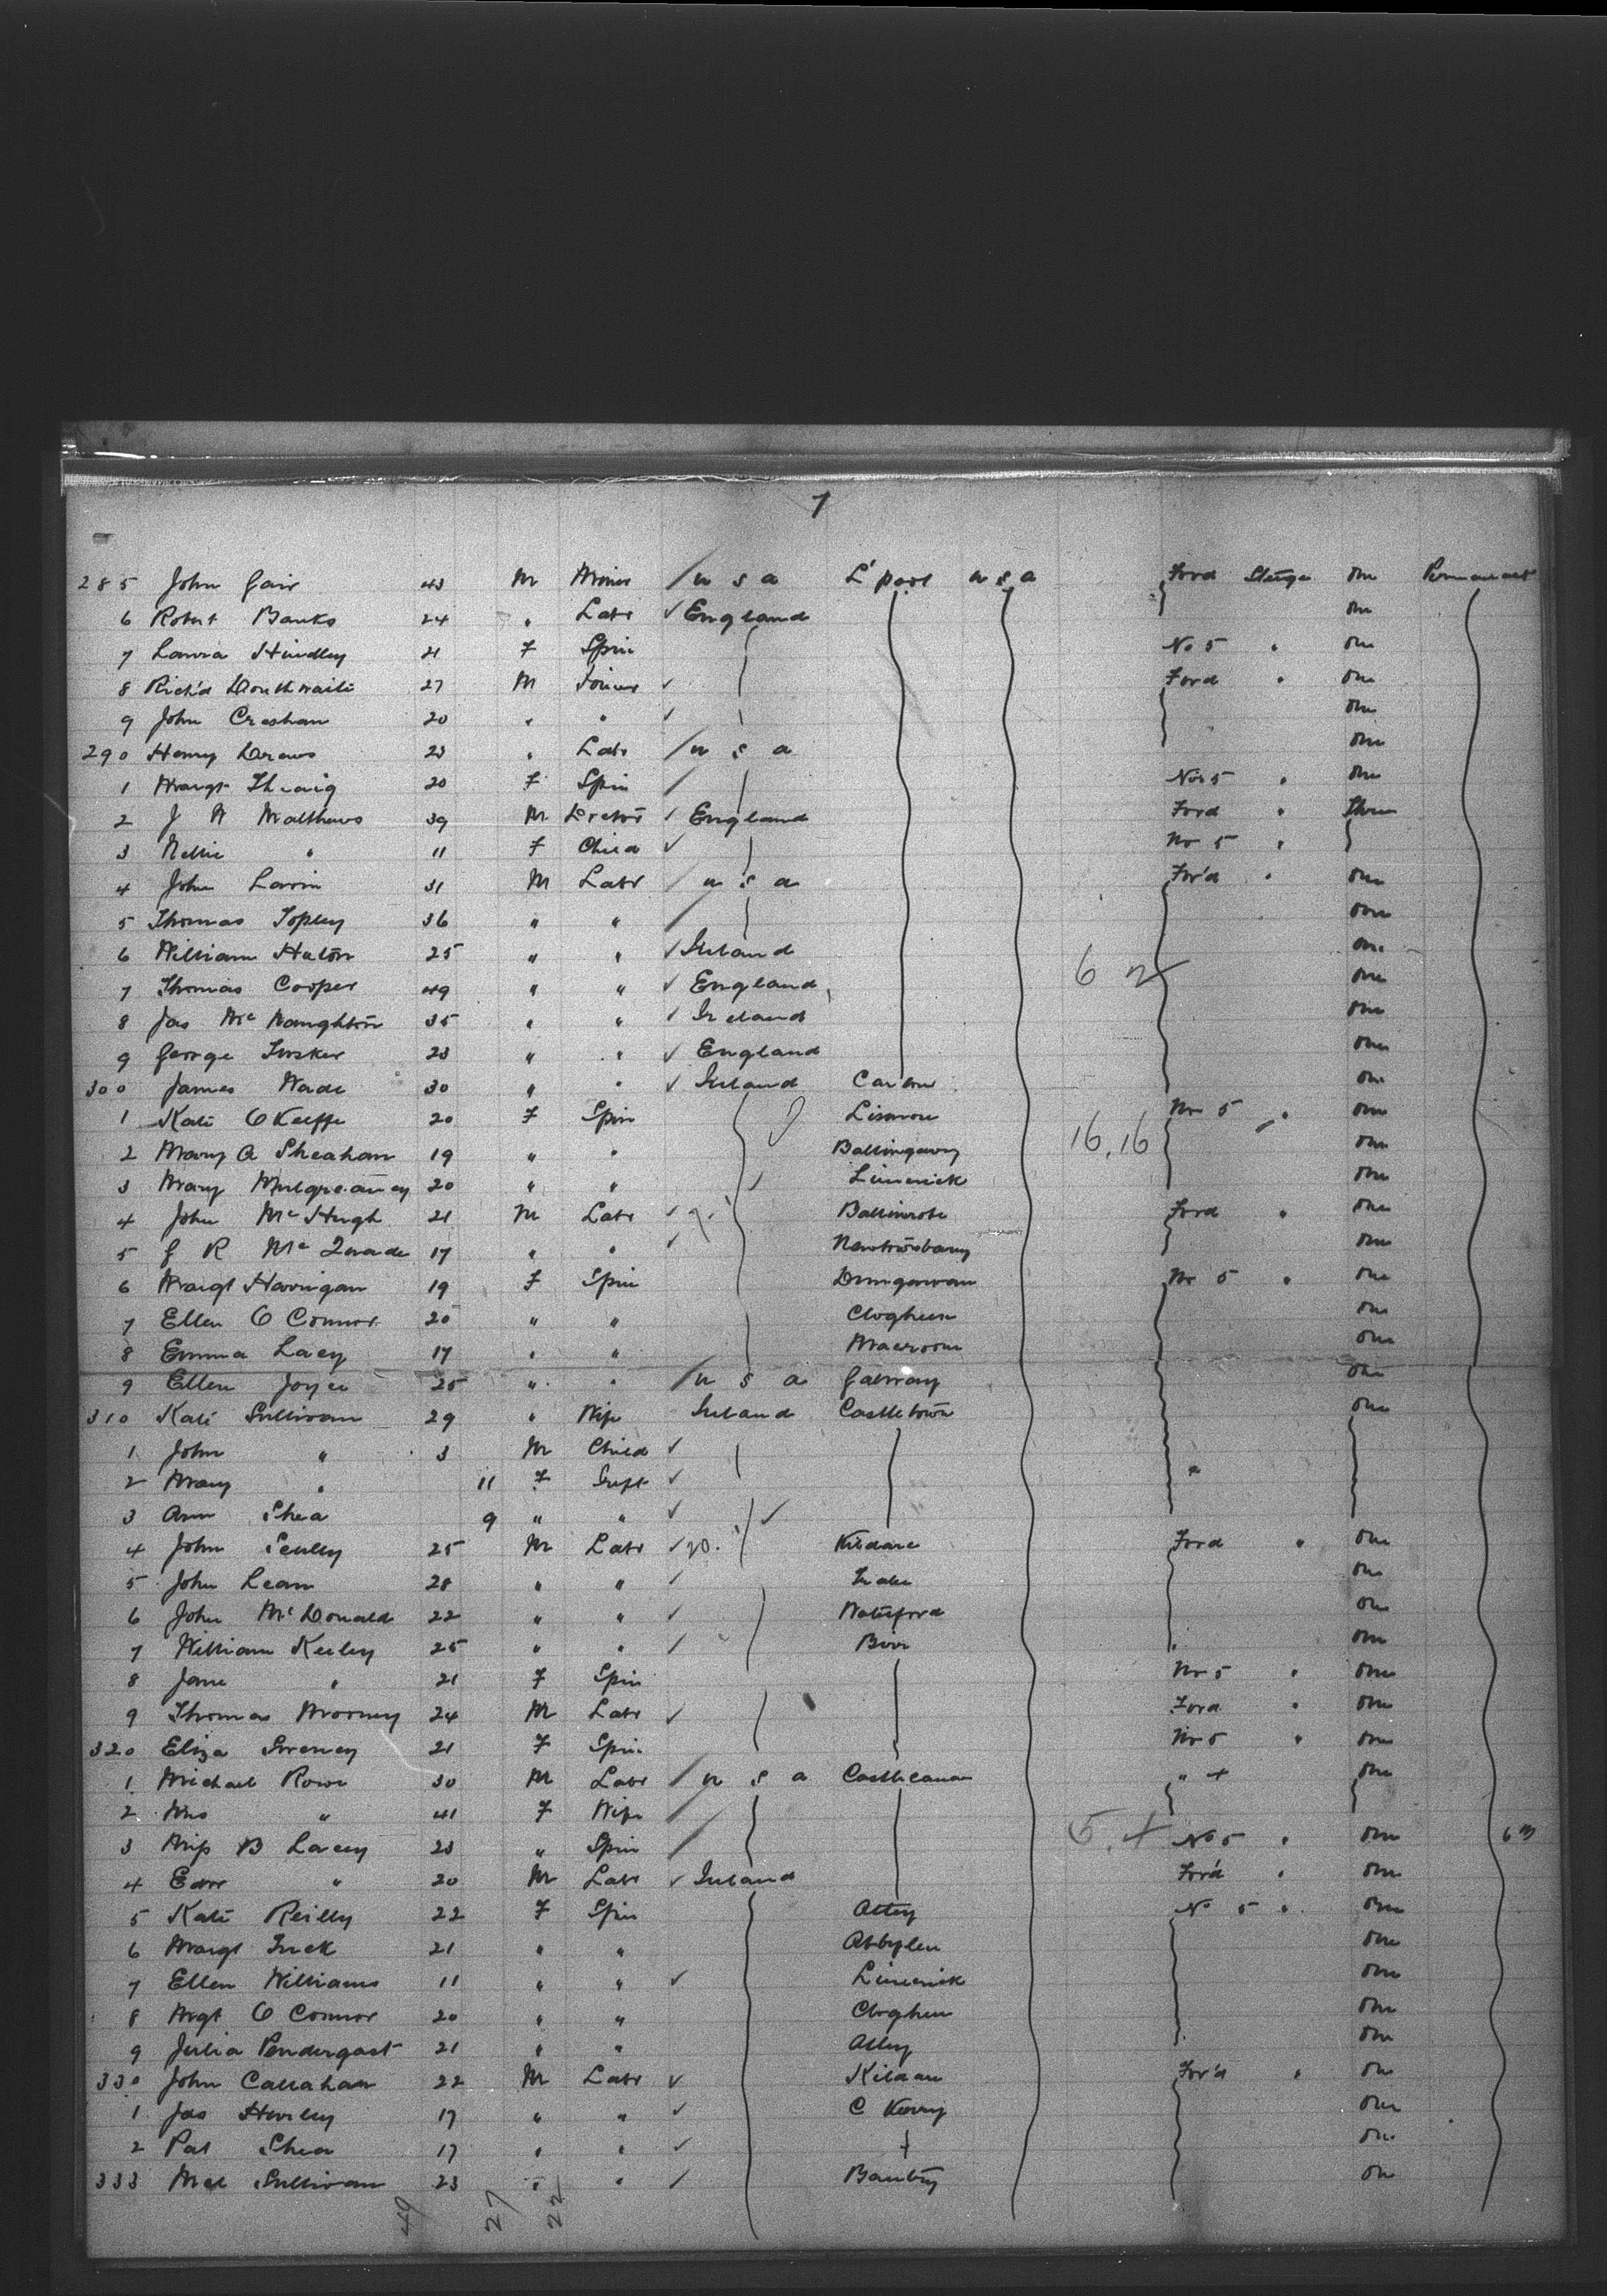 7
285 John Gair 43 M Miner / U S A L'pool U S A Ford Steerge One Permanent
6 Robert Banks 24 " Labr ✓ England One
7 Laura Hindley 21 F Spin No 5 " One
8 Rich'd Douthwaite 27 M Joiner ✓ Ford " One
9 John Cresham 20 " " ✓ One
290 Henry Drews 23 " Labr / U S A One
1 Margt 20 F Spin / No 5 " One
2 J W Matthews 39 M Doctor ✓ England Ford " Three
3 Nellie " 11 F Child ✓ No 5 "
4 John Lavin 31 M Labr / U S A For'd " One
5 Thomas Topley 36 " " / One
6 William Huton 25 " " ✓ Ireland One
7 Thomas Cooper 49 " " ✓ England 6 2 One
8 Jas McNaughton 35 " " ✓ Ireland One
9 George Tusker 23 " " ✓ England One
300 James Wade 30 " " ✓ Ireland Carlow One
1 Kate O Keeffe 20 F Spin Lismore No 5 " One
2 Mary A Sheahan 19 " " Ballingarry 16,16 One
3 Mary 20 " " ✓ Limerick One
4 John McHugh 21 M Labr ✓ Ballinrobe Ford " One
5 J R McQuade 17 " " ✓ One
6 Margt Harrigan 19 F Spin Dungarvan No 5 " One
7 Ellen O Connor 20 " " Clogheen One
8 Emma Lacy 17 " " Macroom One
9 Ellen Joyce 25 " " / U S A Galway One
310 Kate Sullivan 29 " Wife Ireland Castletown One
1 John " 3 M Child ✓
2 Mary " 11 F Inft ✓ "
3 Ann Shea 9 " " ✓ ✓
4 John Scully 25 M Labr ✓ Kildare Ford " One
5 John Lean 28 " " ✓ Tralee One
6 John McDonald 22 " " ✓ Waterford One
7 William Keeley 25 " " / Birr " One
8 Jane " 21 F Spin No 5 " One
9 Thomas Mooney 24 M Labr ✓ Ford " One
320 Eliza Sweeney 21 F Spin No 5 " One
1 Michael Rowe 30 M Labr / U S A " 4 One
2 Mrs " 41 F Wife /
3 Miss B Lacey 23 " Spin / 5, 4 No 5 " One 6 m
4 Edw " 20 M Labr ✓ Ireland Ford " One
5 Kate Reilly 22 F Spin Athy No 5 " One
6 Margt Tuck 21 " " One
7 Ellen Williams 11 " " ✓ Limerick One
8 Mgt O Connor 20 " " Clogheen One
9 Julia Pendergast 21 " " Athy One
330 John Callahan 22 M Labr ✓ Kildare For'd " One
1 Jas Hurley 17 " " ✓ C Kerry One
2 Pat Shea 17 " " ✓ One
333 Mcl Sullivan 23 " " / Bantry One
49 27 22